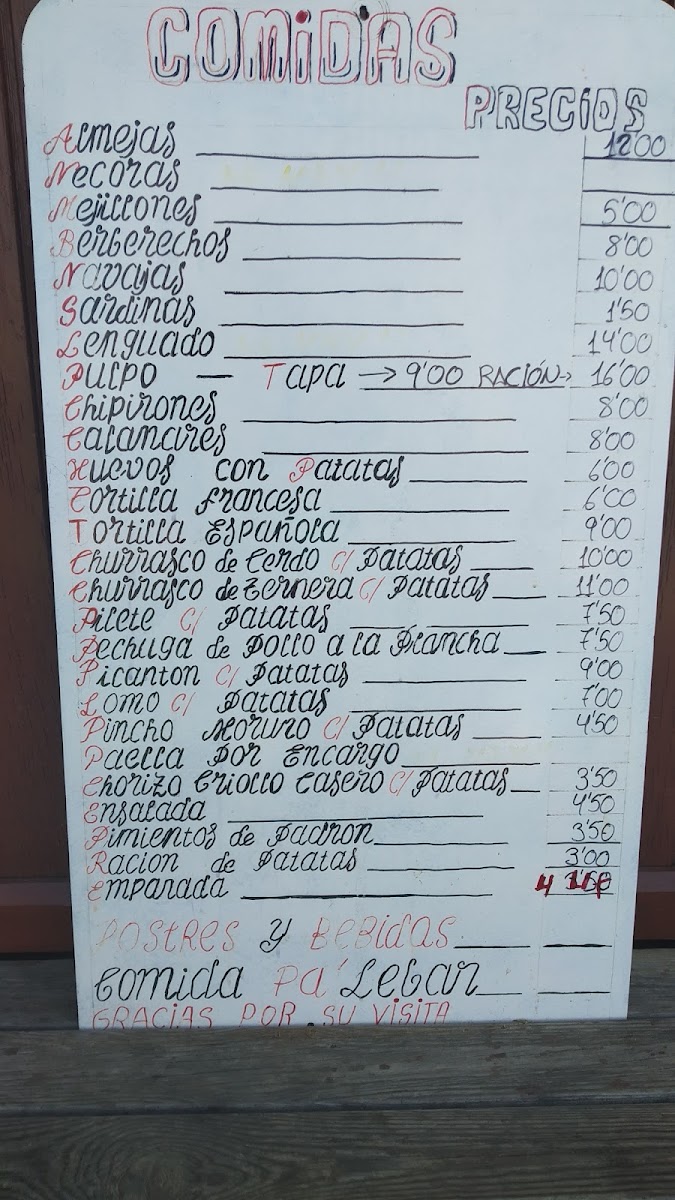 COMiDAS
PRECiOS
Almejas 12'00
Necoras
Mejillones 5'00
Berberechos 8'00
Navajas 10'00
Sardinas 1'50
Lenguado 14'00
Pulpo — Tapa → 9'00 RACIÓN → 16'00
Chipirones 8'00
Calamares 8'00
Huevos con Patatas 6'00
Tortilla francesa 6'00
Tortilla Española 9'00
Churrasco de Cerdo c/ Patatas 10'00
Churrasco de Ternera c/ Patatas 11'00
Filete c/ Patatas 7'50
Pechuga de Pollo a la Plancha 7'50
Picanton c/ Patatas 9'00
Lomo c/ Patatas 7'00
Pincho Moruno c/ Patatas 4'50
Paella Por Encargo
Chorizo Criollo Casero c/ Patatas 3'50
Ensalada 4'50
Pimientos de Padron 3'50
Racion de Patatas 3'00
Empanada
POSTRES y BEBIDAS
Comida PA' Lebar
GRACIAS POR SU VISITA